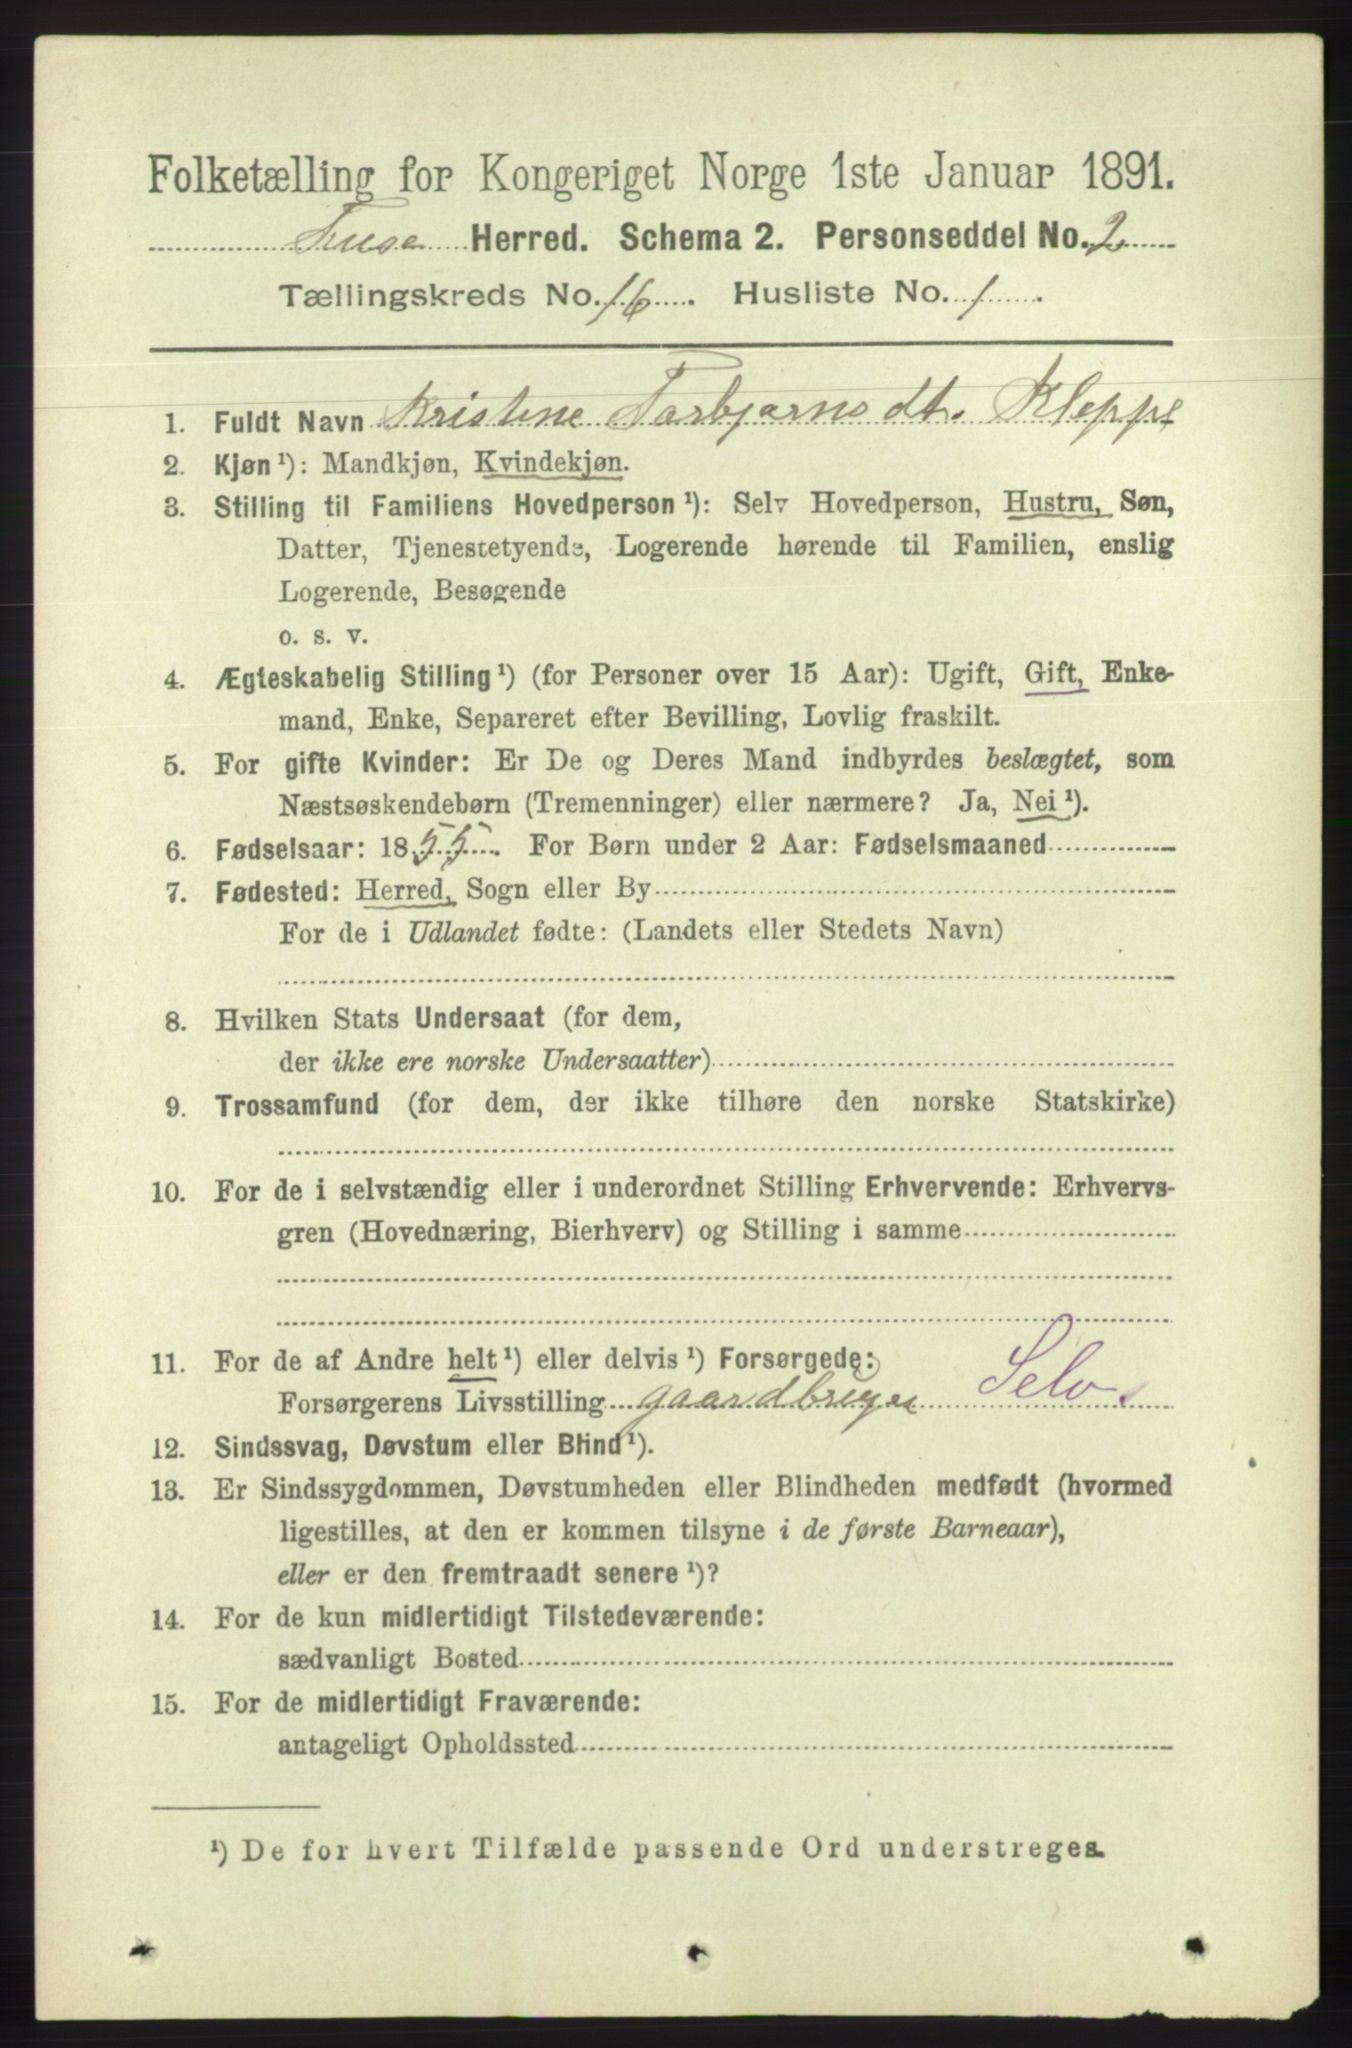 Folketælling for Kongeriget Norge 1ste Januar 1891.
Fusa Herred. Schema 2. Personseddel No. 2
Tællingskreds No. 16. Husliste No. 1.
1. Fuldt Navn Kristine Torbjørnsdt. Kleppe
2. Kjøn ¹): Mandkjøn, Kvindekjøn.
3. Stilling til Familiens Hovedperson ¹): Selv Hovedperson, Hustru, Søn,
Datter, Tjenestetyende, Logerende hørende til Familien, enslig
Logerende, Besøgende
o. s. v.
4. Ægteskabelig Stilling ¹) (for Personer over 15 Aar): Ugift, Gift, Enke-
mand, Enke, Separeret efter Bevilling, Lovlig fraskilt.
5. For gifte Kvinder: Er De og Deres Mand indbyrdes beslægtet, som
Næstsøskendebørn (Tremenninger) eller nærmere? Ja, Nei ¹).
6. Fødselsaar: 1855. For Børn under 2 Aar: Fødselsmaaned
7. Fødested: Herred, Sogn eller By
For de i Udlandet fødte: (Landets eller Stedets Navn)
8. Hvilken Stats Undersaat (for dem,
der ikke ere norske Undersaatter)
9. Trossamfund (for dem, der ikke tilhøre den norske Statskirke)
10. For de i selvstændig eller i underordnet Stilling Erhvervende: Erhvervs-
gren (Hovednæring, Bierhverv) og Stilling i samme
11. For de af Andre helt ¹) eller delvis ¹) Forsørgede:
Forsørgerens Livsstilling gaardbruger Selv.
12. Sindssvag, Døvstum eller Blind ¹).
13. Er Sindssygdommen, Døvstumheden eller Blindheden medfødt (hvormed
ligestilles, at den er kommen tilsyne i de første Barneaar),
eller er den fremtraadt senere ¹)?
14. For de kun midlertidigt Tilstedeværende:
sædvanligt Bosted
15. For de midlertidigt Fraværende:
antageligt Opholdssted
¹) De for hvert Tilfælde passende Ord understreges.